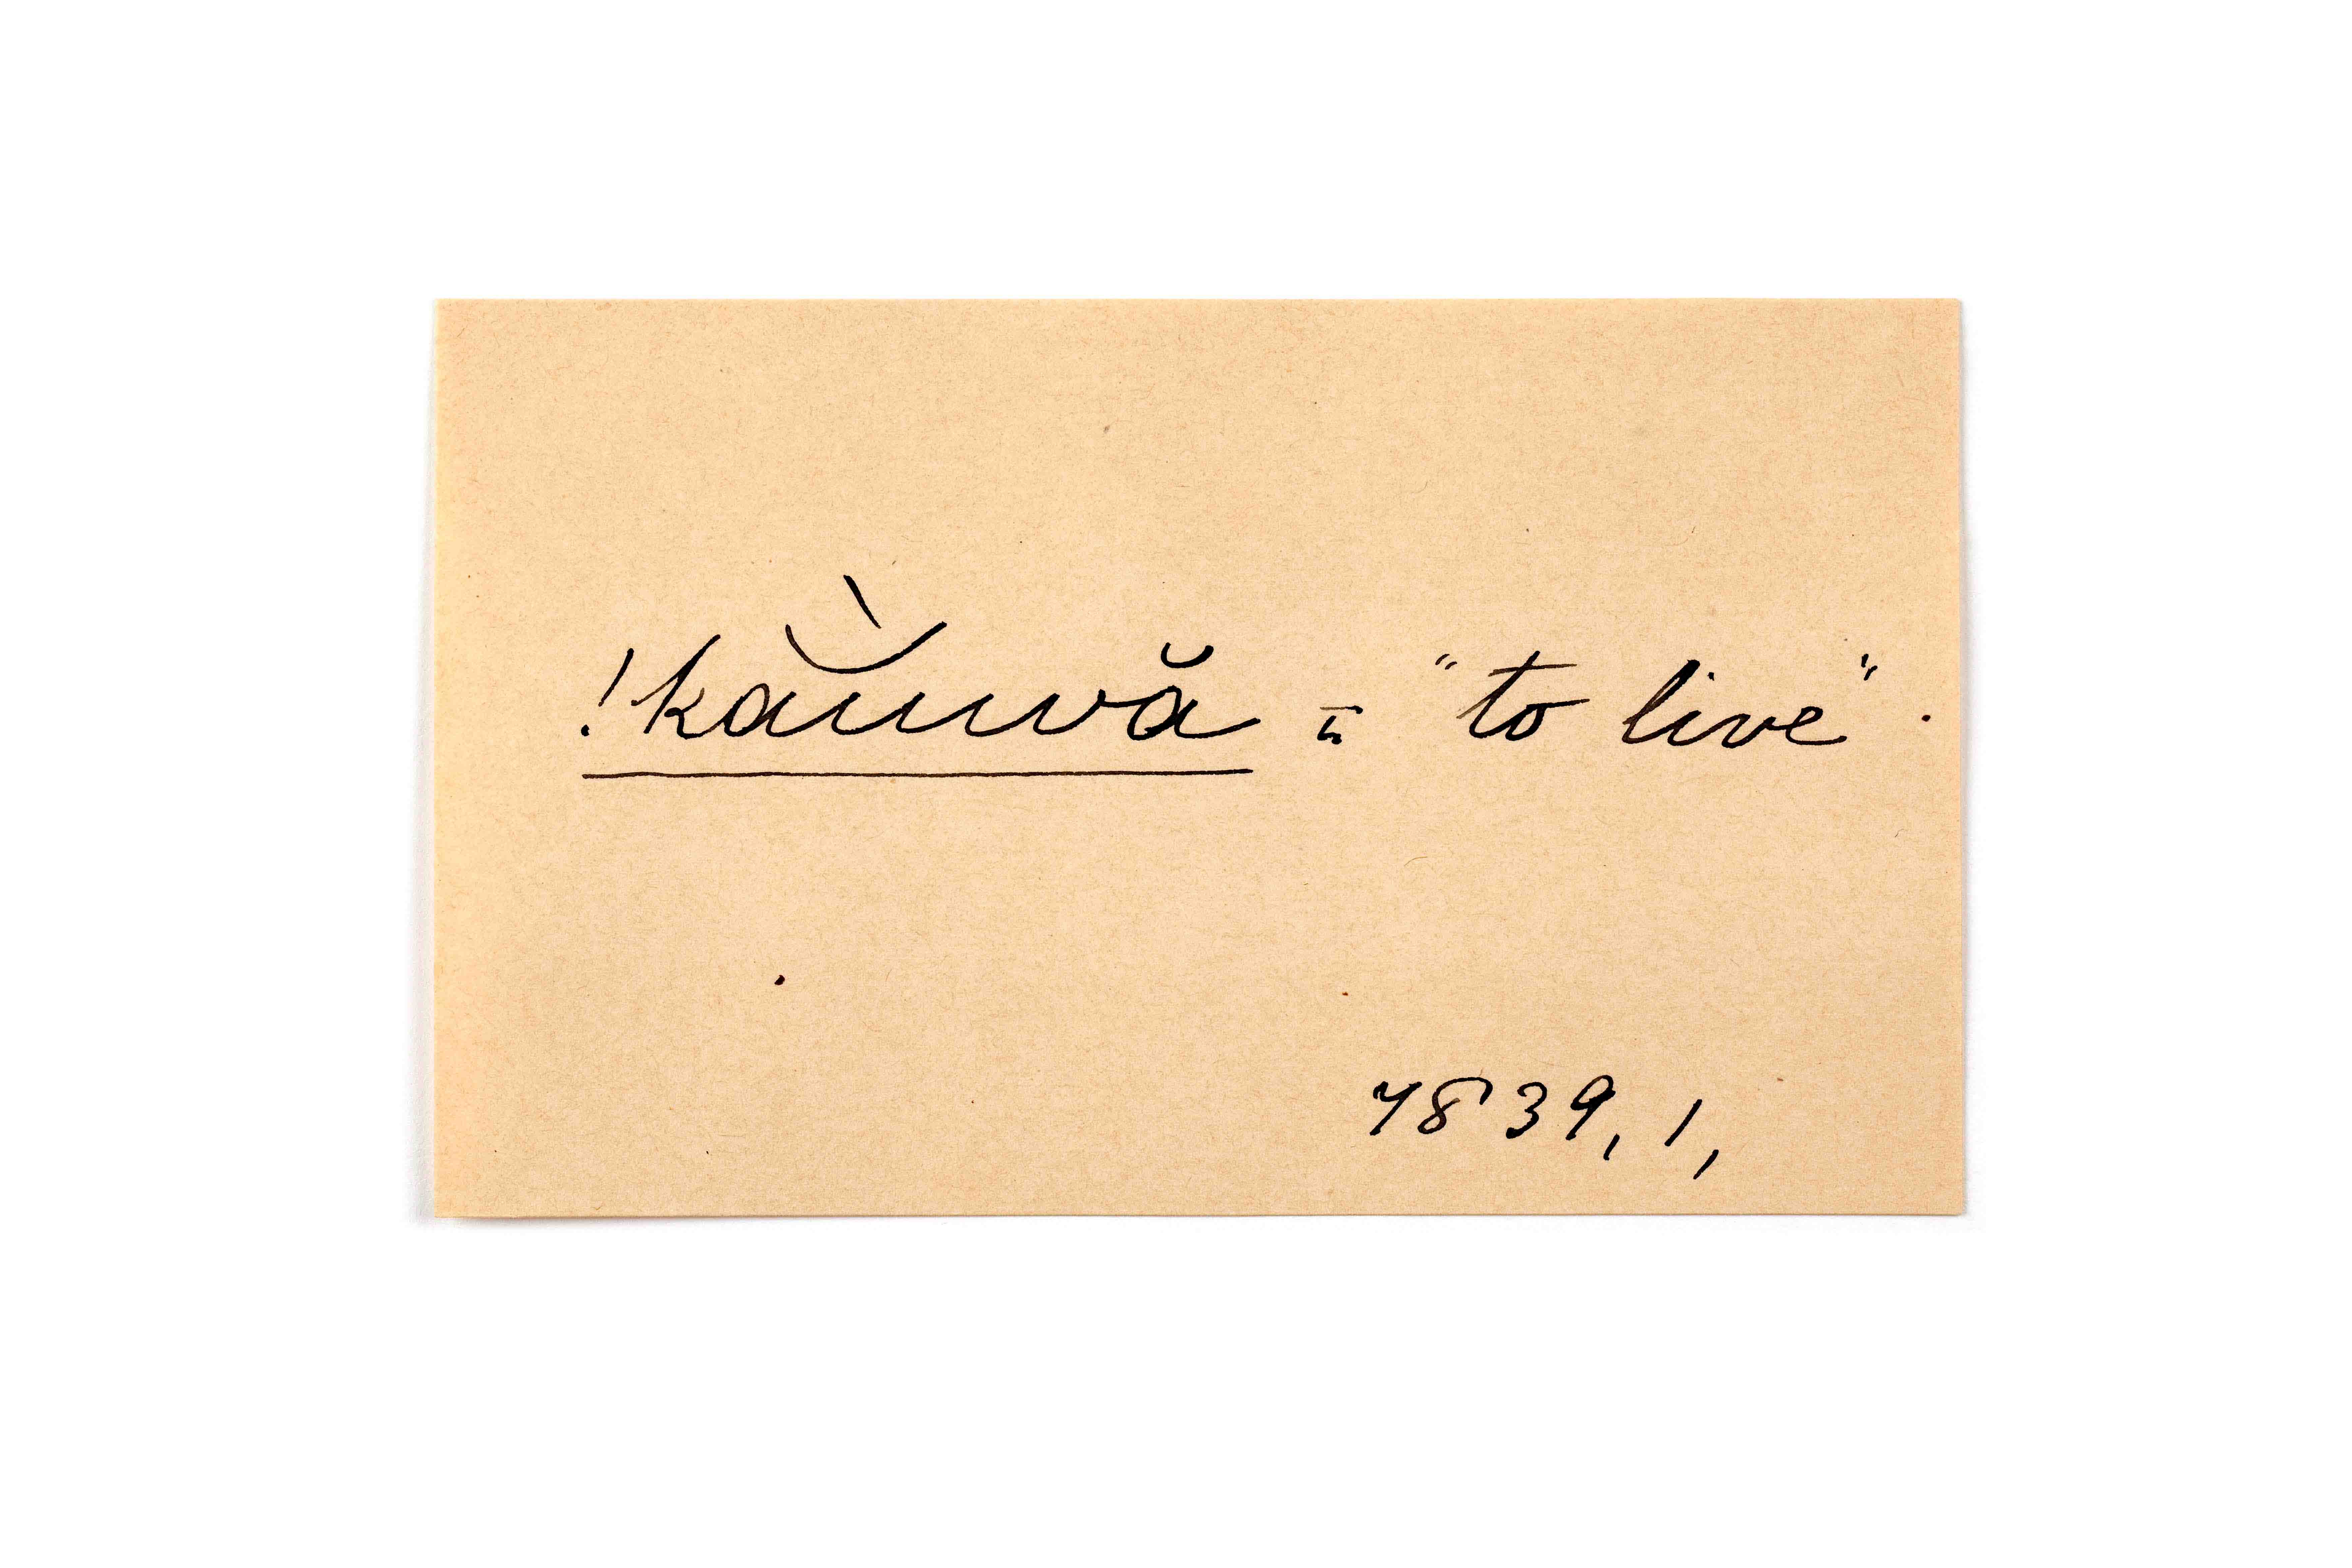 !kằuwă = "to live".
7839, 1,